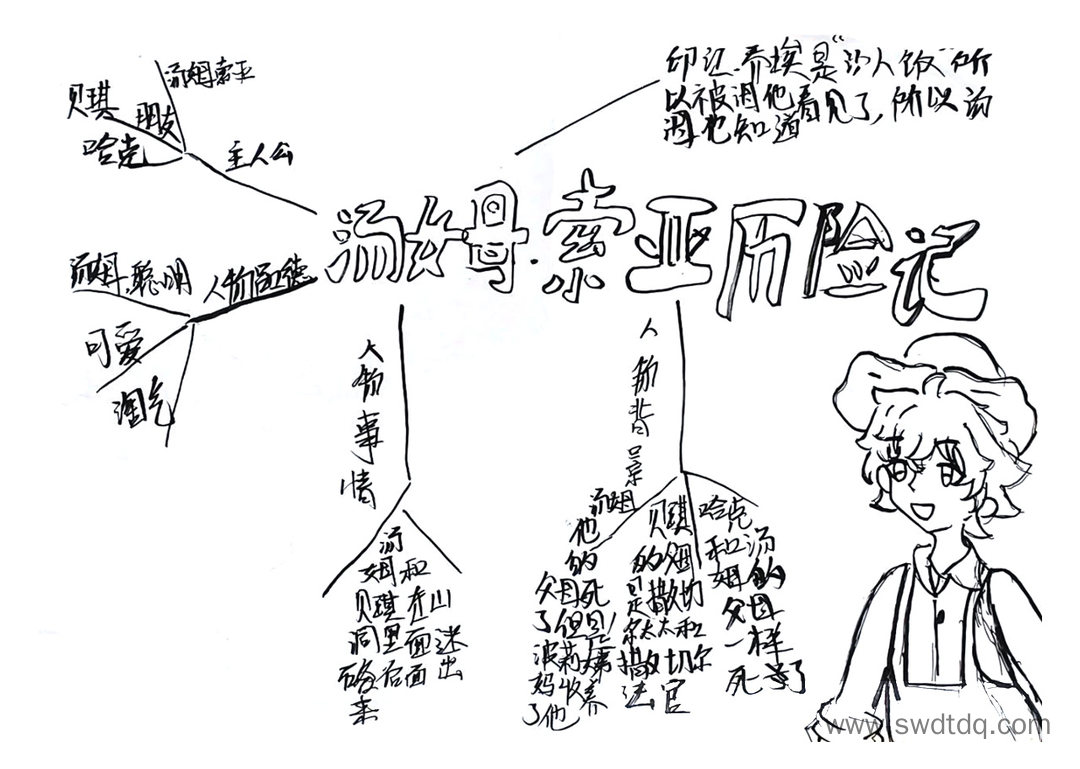 汤姆索亚
贝琪
朋友
哈克
主人公
印江.乔埃是“沙人饭”所
以被汤他看见了,所以汤
姆也知道
汤姆.索亚历险记
汤姆.聪明
人物品德
可爱
淘气
人物事情
汤
姆和
贝琪在山
洞里面迷
路后面出
来
人物背景
汤姆
他
的
父母死
了但是
波莉姨
妈收养
了他
贝琪
的父母
是撒切
尔太太和
撒切尔
法官
哈克
和汤
姆的
父母
一样
死了
www.swdtdq.com